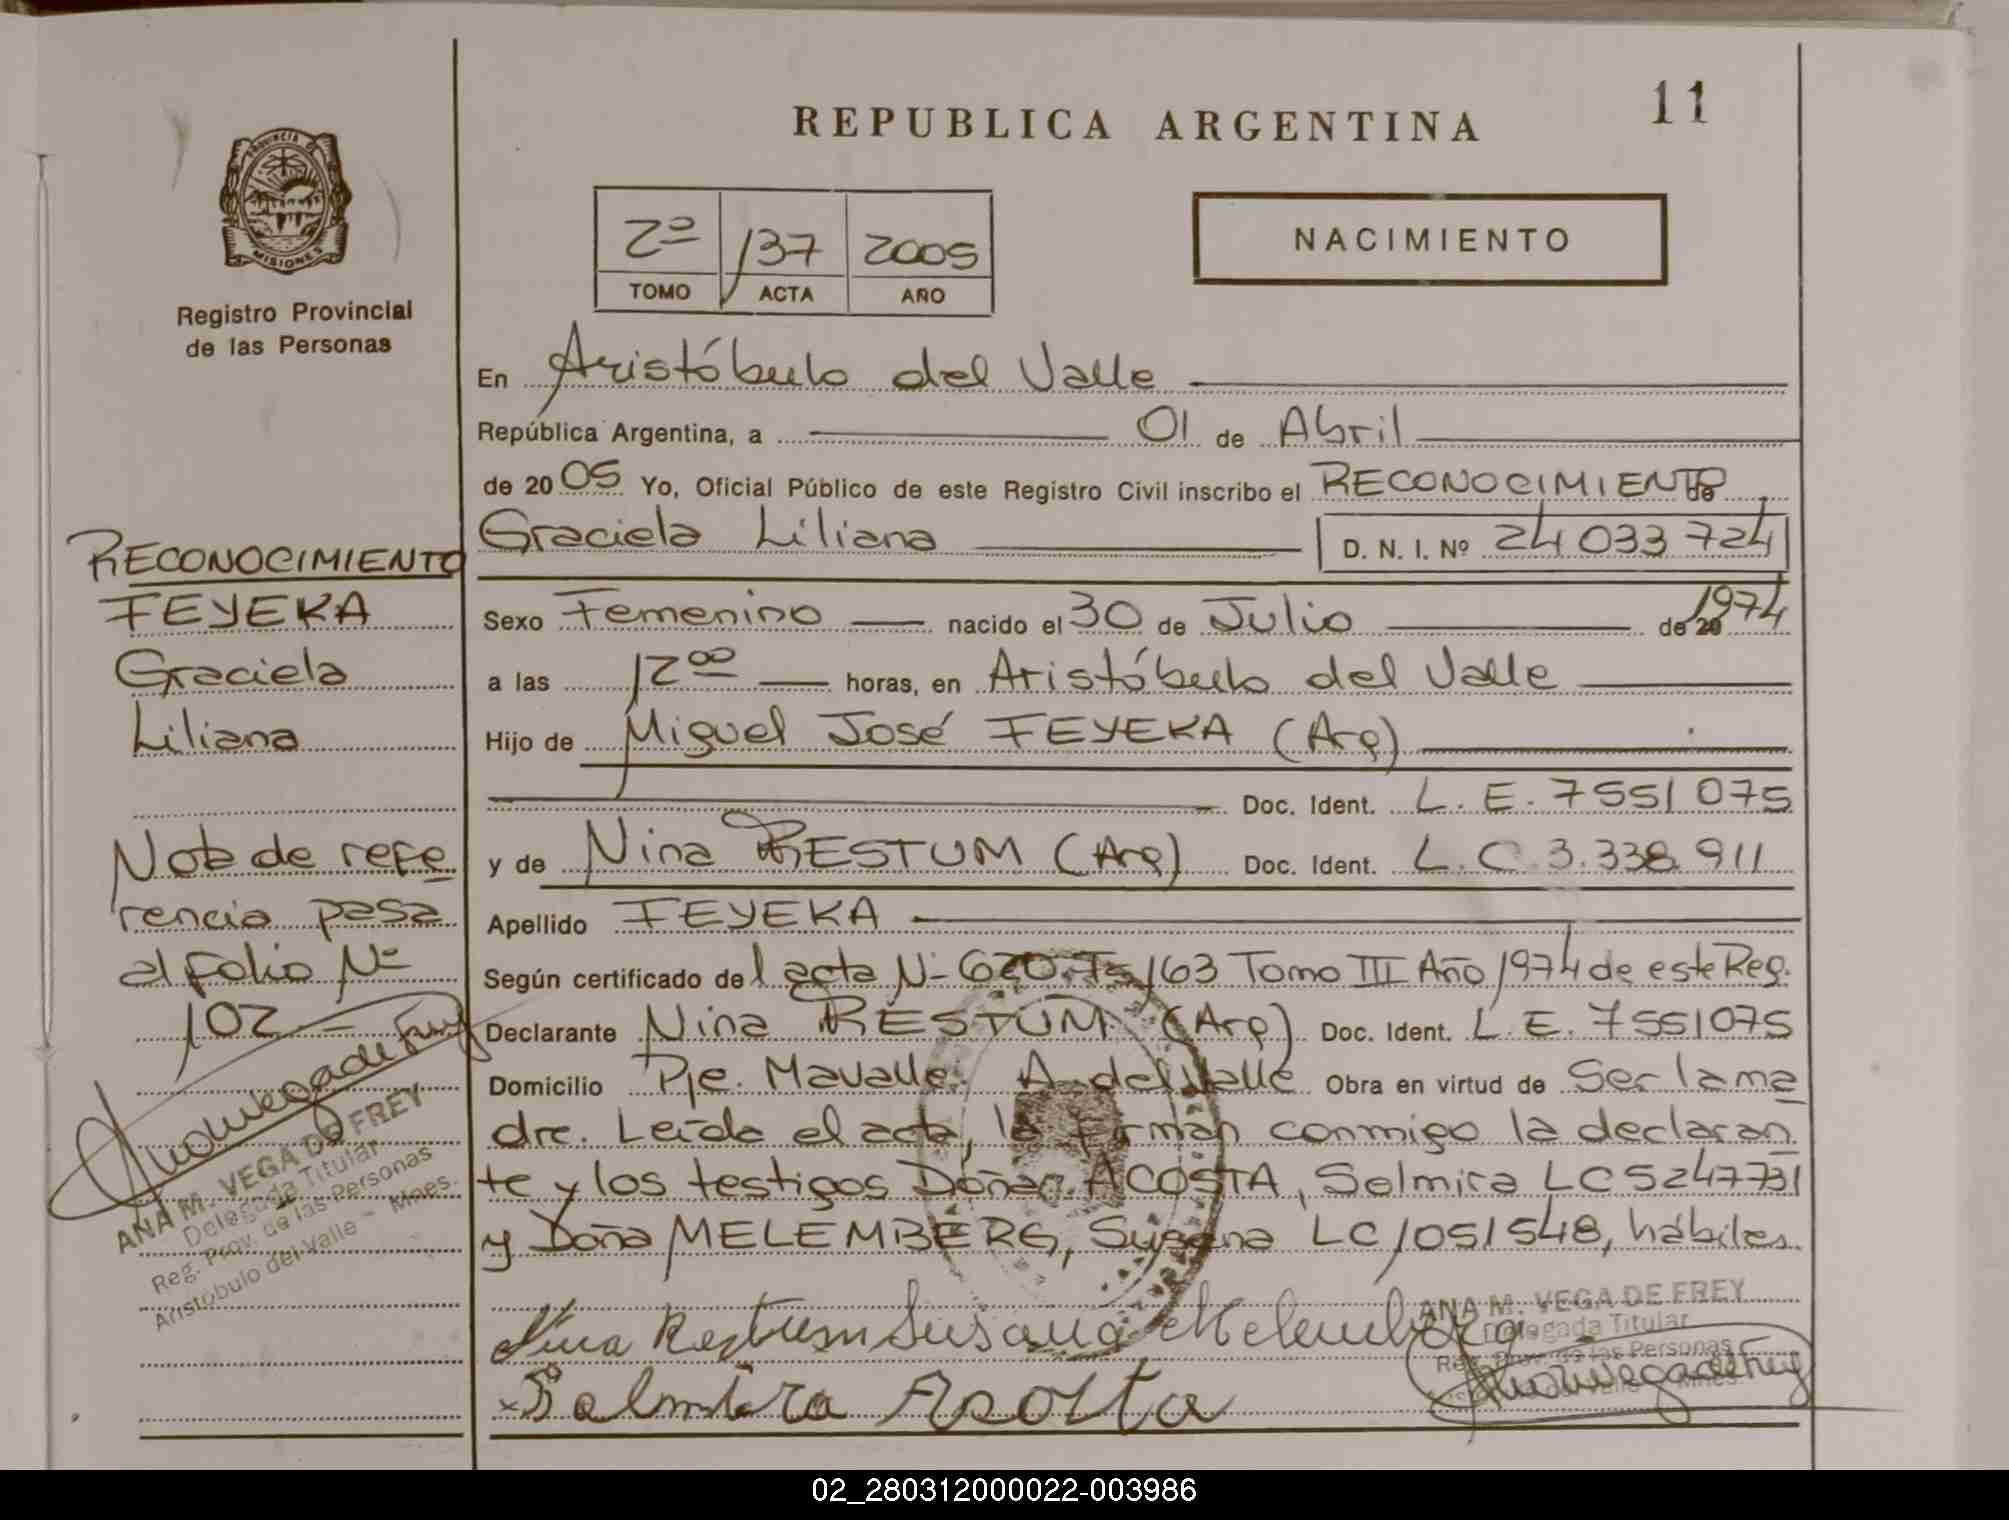 REPUBLICA ARGENTINA
11
PROVINCIA DE
MISIONES
Registro Provincial
de las Personas
2º 137 2005
TOMO ACTA AÑO
NACIMIENTO
En Aristóbulo del Valle
República Argentina, a 01 de Abril
de 2005 Yo, Oficial Público de este Registro Civil inscribo el RECONOCIMIENTO de
Graciela Liliana D. N. I. Nº 24 033 724
Sexo Femenino nacido el 30 de Julio de 1974
a las 12 00 horas, en Aristóbulo del Valle
Hijo de Miguel José FEYEKA (Arg)
Doc. Ident. L. E. 7551075
y de Nina RESTUM (Arg) Doc. Ident. L. C 3.338.911
Apellido FEYEKA
Según certificado del acta Nº 620 Tº 163 Tomo III Año 1974 de este Reg.
Declarante Nina RESTUM (Arg) Doc. Ident. L. E. 7551075
Domicilio Pje. Mavalle. A. del Valle Obra en virtud de Ser la ma
dre. Leída el acta, la firman conmigo la declaran
te y los testigos Doña ACOSTA, Selmira LC 5247731
y Doña MELEMBERG, Susana LC 1051548, hábiles.
Nina Restum Susana Melemberg
x Selmira Acosta
ANA M. VEGA DE FREY
Delegada Titular
Reg. Prov. de las Personas
RECONOCIMIENTO
FEYEKA
Graciela
Liliana
Nota de refe
rencia pasa
al folio Nº
102
Ana M. Vega de Frey
ANA M. VEGA DE FREY
Delegada Titular
Reg. Prov. de las Personas
Aristóbulo del Valle - Mnes.
02_280312000022-003986